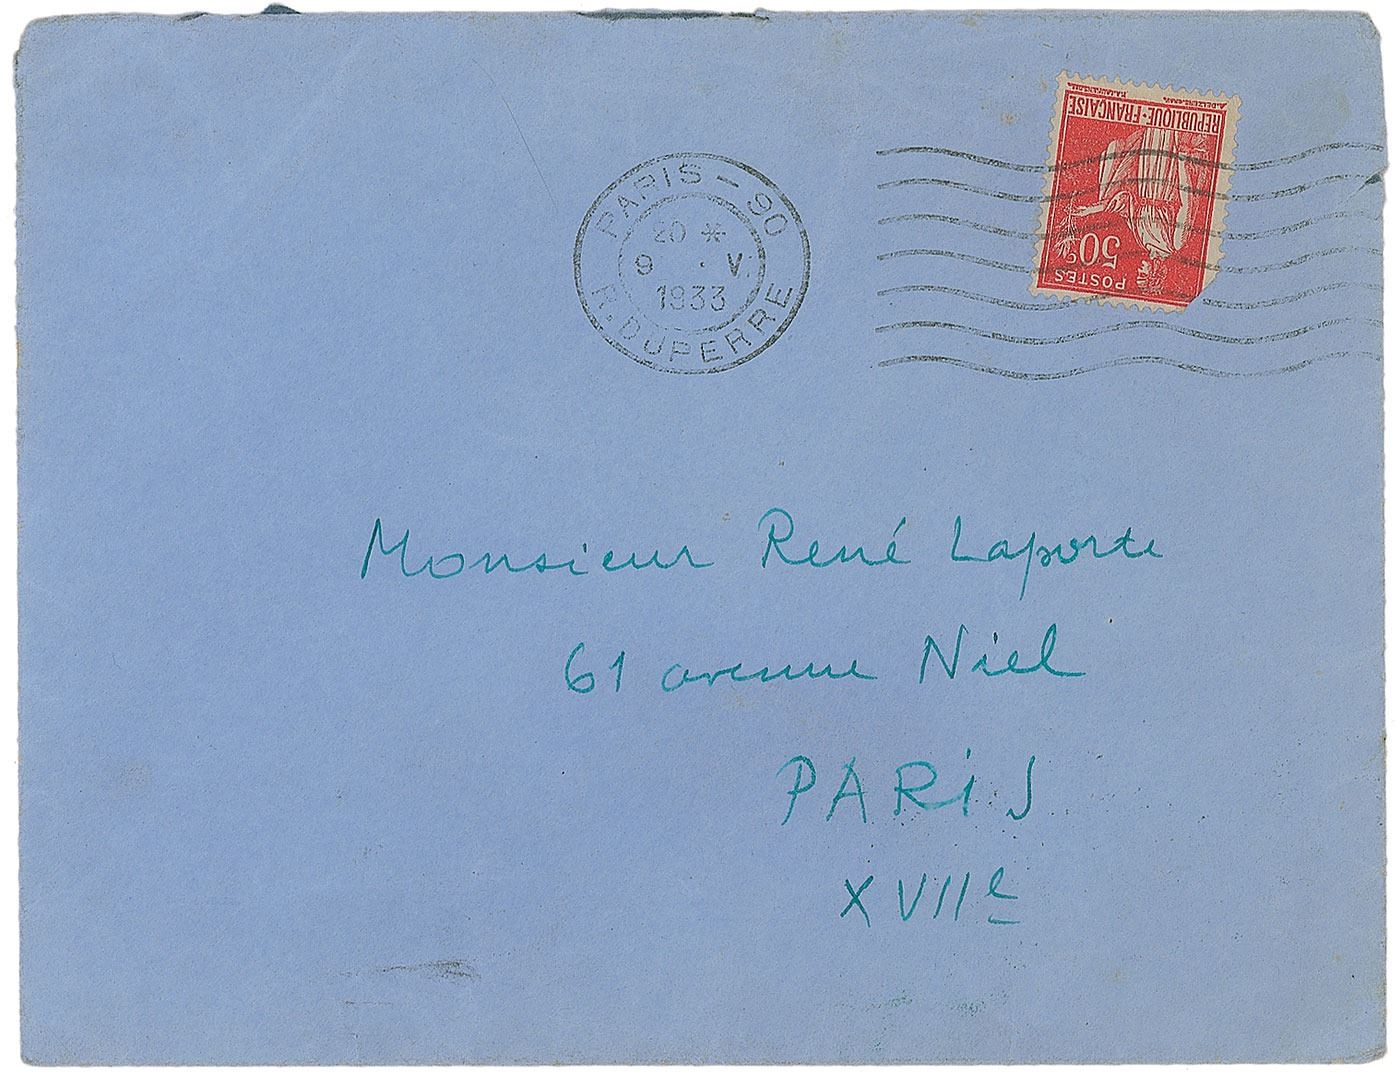 PARIS - 90
20 *
9 · V.
1933
R. DUPERRE
REPUBLIQUE-FRANÇAISE
50c
POSTES
Monsieur René Laporte
61 avenue Niel
PARIS
XVIIe